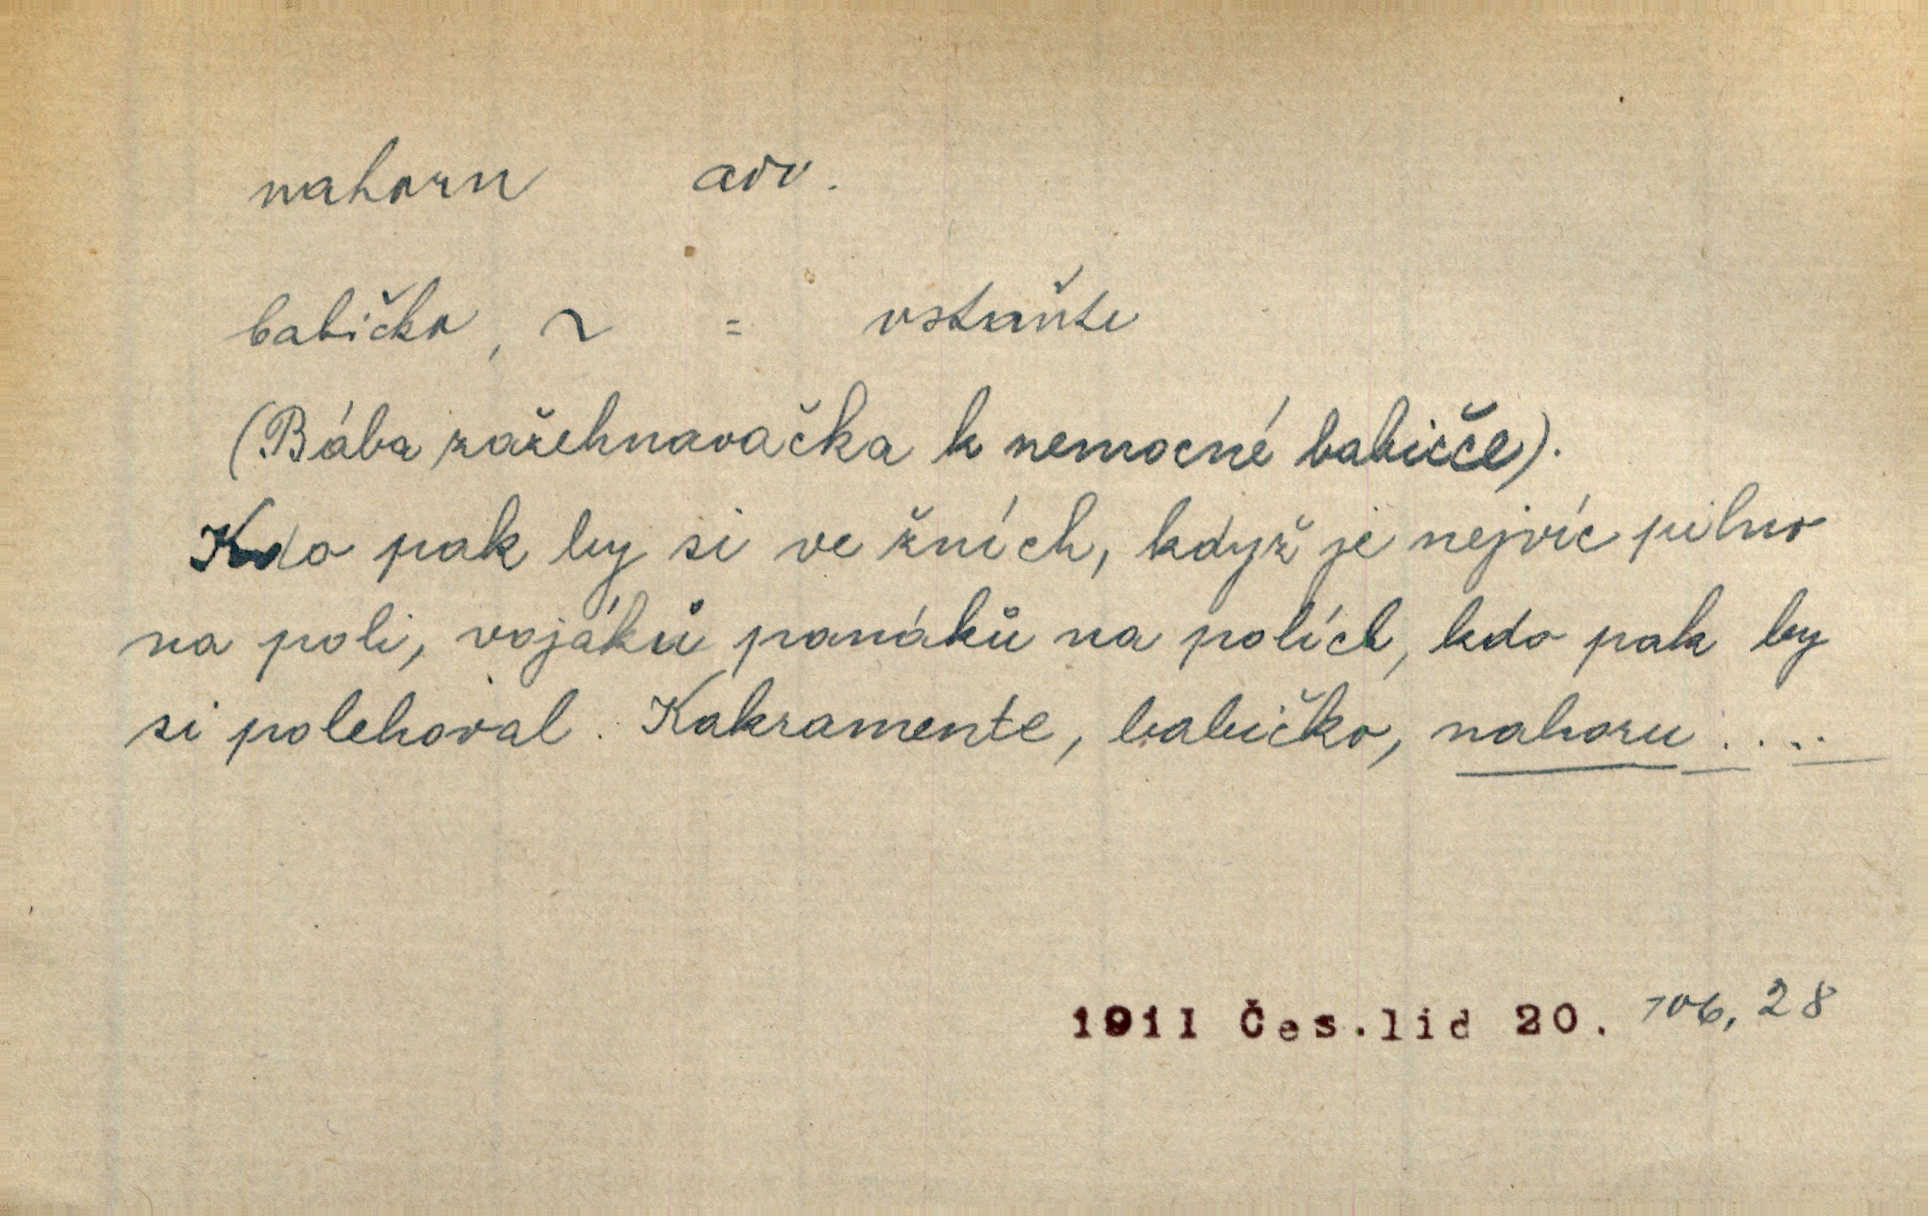 nahoru adv.
babičko, ~ = vstaňte
(Bába zažehnavačka k nemocné babičče).
Kdo pak by si ve žních, když je nejvíc pilno
na poli, vojáků panáků na polích, kdo pak by
si polehoval. Kakramente, babičko, nahoru ....
1911 Čes.lid 20. 106, 28